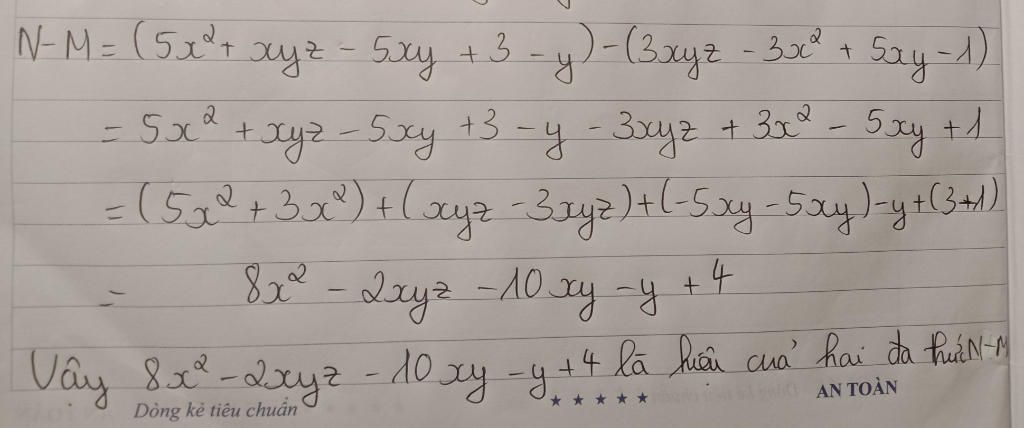 N-M = (5x² + xyz - 5xy + 3 - y) - (3xyz - 3x² + 5xy - 1)
= 5x² + xyz - 5xy + 3 - y - 3xyz + 3x² - 5xy + 1
= (5x² + 3x²) + (xyz - 3xyz) + (-5xy - 5xy) - y + (3+1)
= 8x² - 2xyz - 10xy - y + 4
Vậy 8x² - 2xyz - 10xy - y + 4 là hiệu cuả hai đa thức N-M
Dòng kẻ tiêu chuẩn ★ ★ ★ ★ ★ AN TOÀN